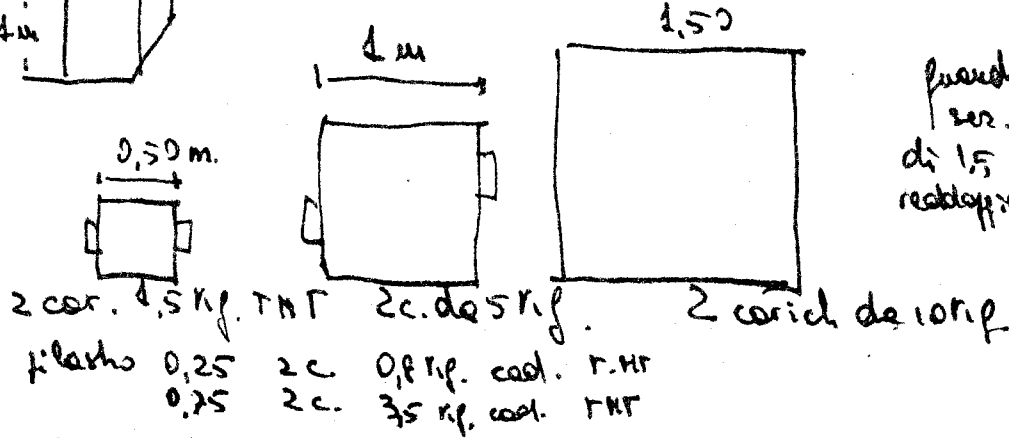 1 m
1 m
1,50
0,50 m.
di 1,5
2 car. 1,5 Kg. TNT
2 c. da 5 Kg.
2 carich da 10 Kg
pilastro 0,25 2 c. 0,8 Kg. cad. T.NT
0,75 2 c. 3,5 Kg. cad. TNT